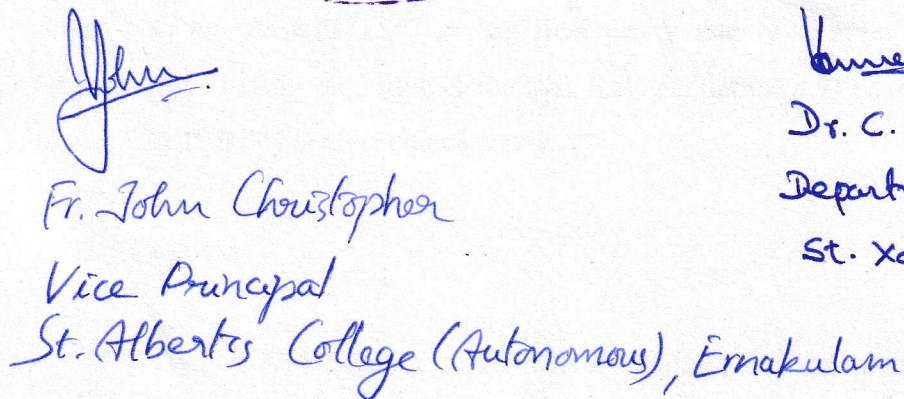 John
Fr. John Christopher
Vice Principal
St. Albert's College (Autonomous), Ernakulam
Dr. C.
Depart
St. Xa